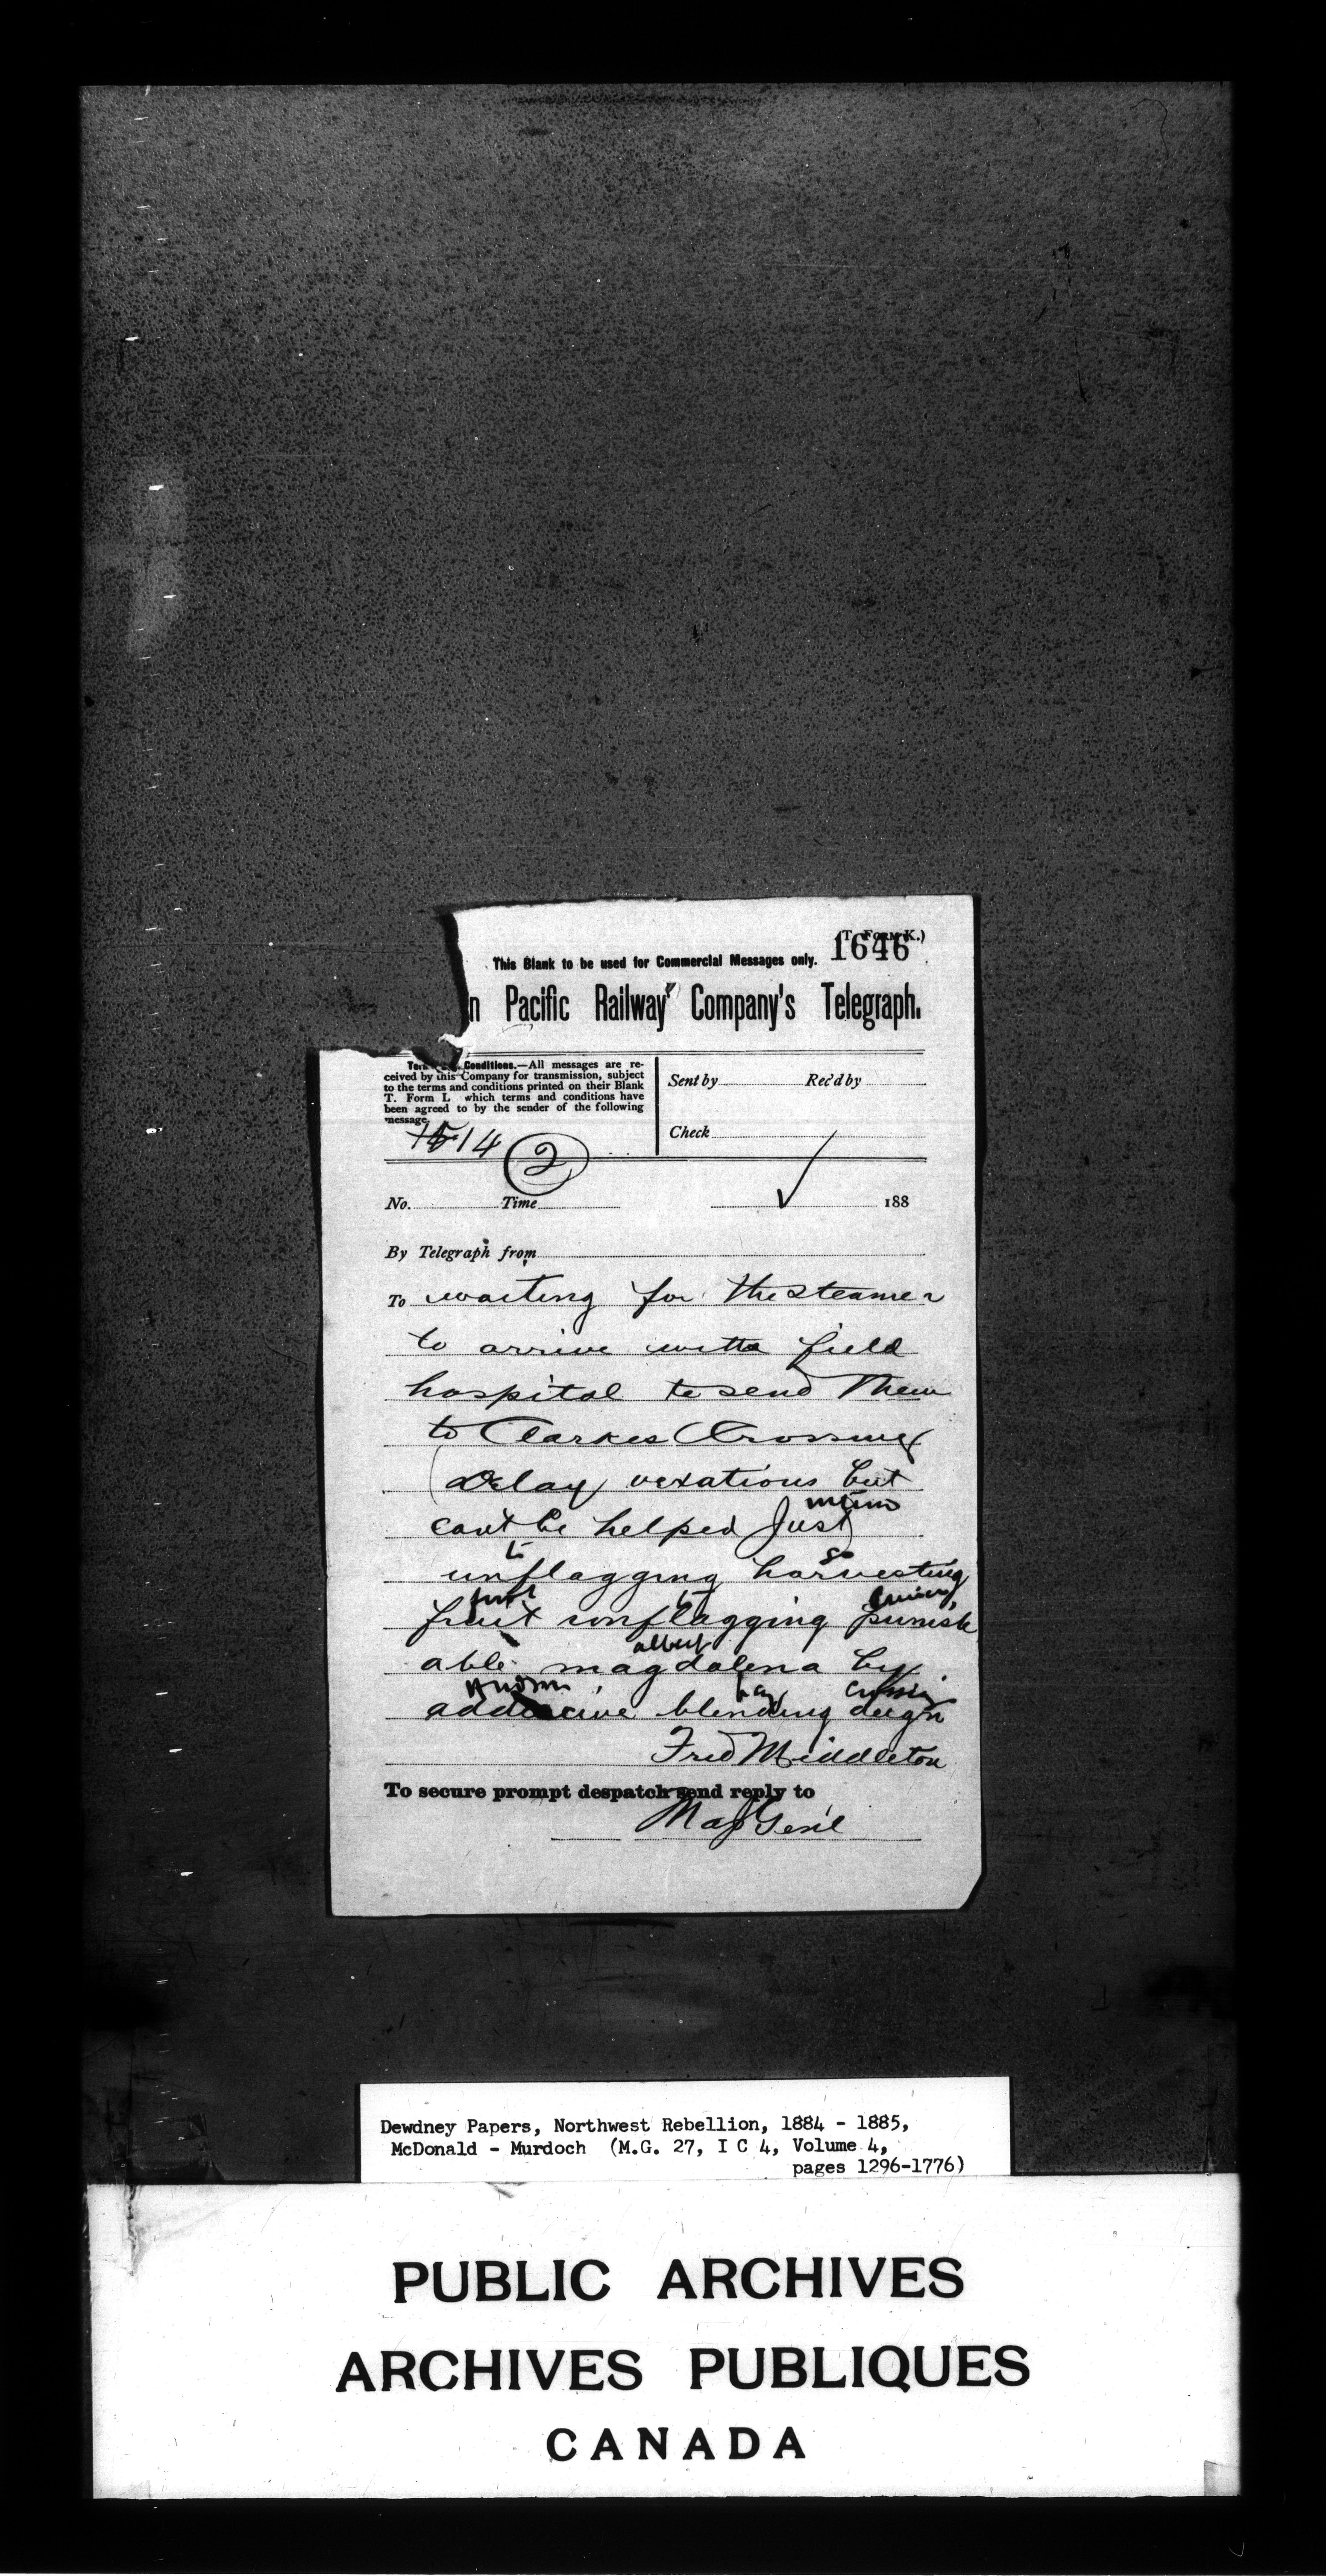 (T. Form K.)
1646
This Blank to be used for Commercial Messages only.
n Pacific Railway Company's Telegraph.
Conditions.—All messages are re-
ceived by this Company for transmission, subject
to the terms and conditions printed on their Blank
T. Form L which terms and conditions have
been agreed to by the sender of the following
message.
Sent by Rec'd by
Check
14
2
No. Time 188
By Telegraph from
To waiting for the steamer
to arrive with field
hospital to send them
to Clarkes Crossing
Delay vexatious but
cant be helped Just
to so
unflagging harvesting
first to
fruit unflagging punish
albert
able magdalena by
hay crossing
blending deign
Fred Middleton
To secure prompt despatch send reply to
Maj Genl
Dewdney Papers, Northwest Rebellion, 1884 - 1885,
McDonald - Murdoch (M.G. 27, I C 4, Volume 4,
pages 1296-1776)
PUBLIC ARCHIVES
ARCHIVES PUBLIQUES
CANADA